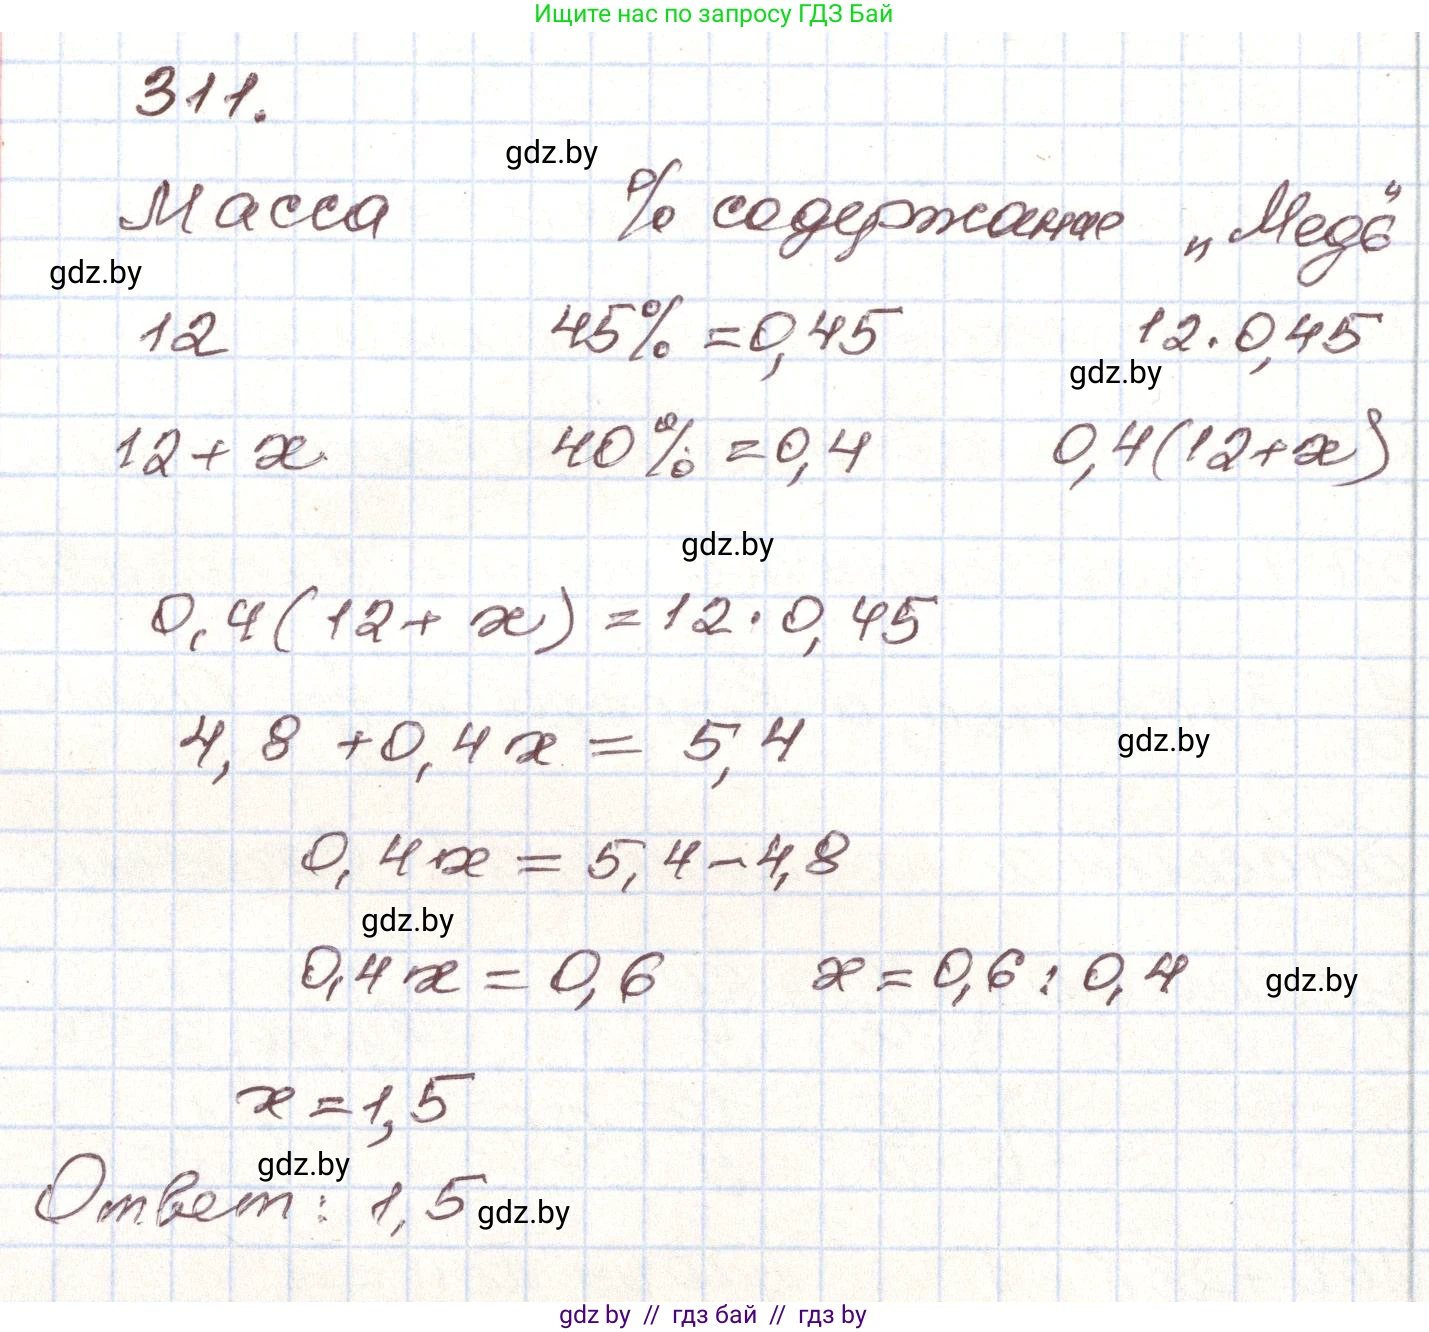 Ищите нас по запросу ГДЗ Бай
311.
gdz.by
Масса % содержание „Медь“
gdz.by
12 45% = 0,45 12 · 0,45
gdz.by
12 + x 40% = 0,4 0,4(12+x)
gdz.by
0,4(12 + x) = 12 · 0,45
4,8 + 0,4x = 5,4
gdz.by
0,4x = 5,4 - 4,8
gdz.by
0,4x = 0,6 x = 0,6 : 0,4
gdz.by
x = 1,5
gdz.by
Ответ: 1,5
gdz.by
gdz by // гдз бай // гдз by